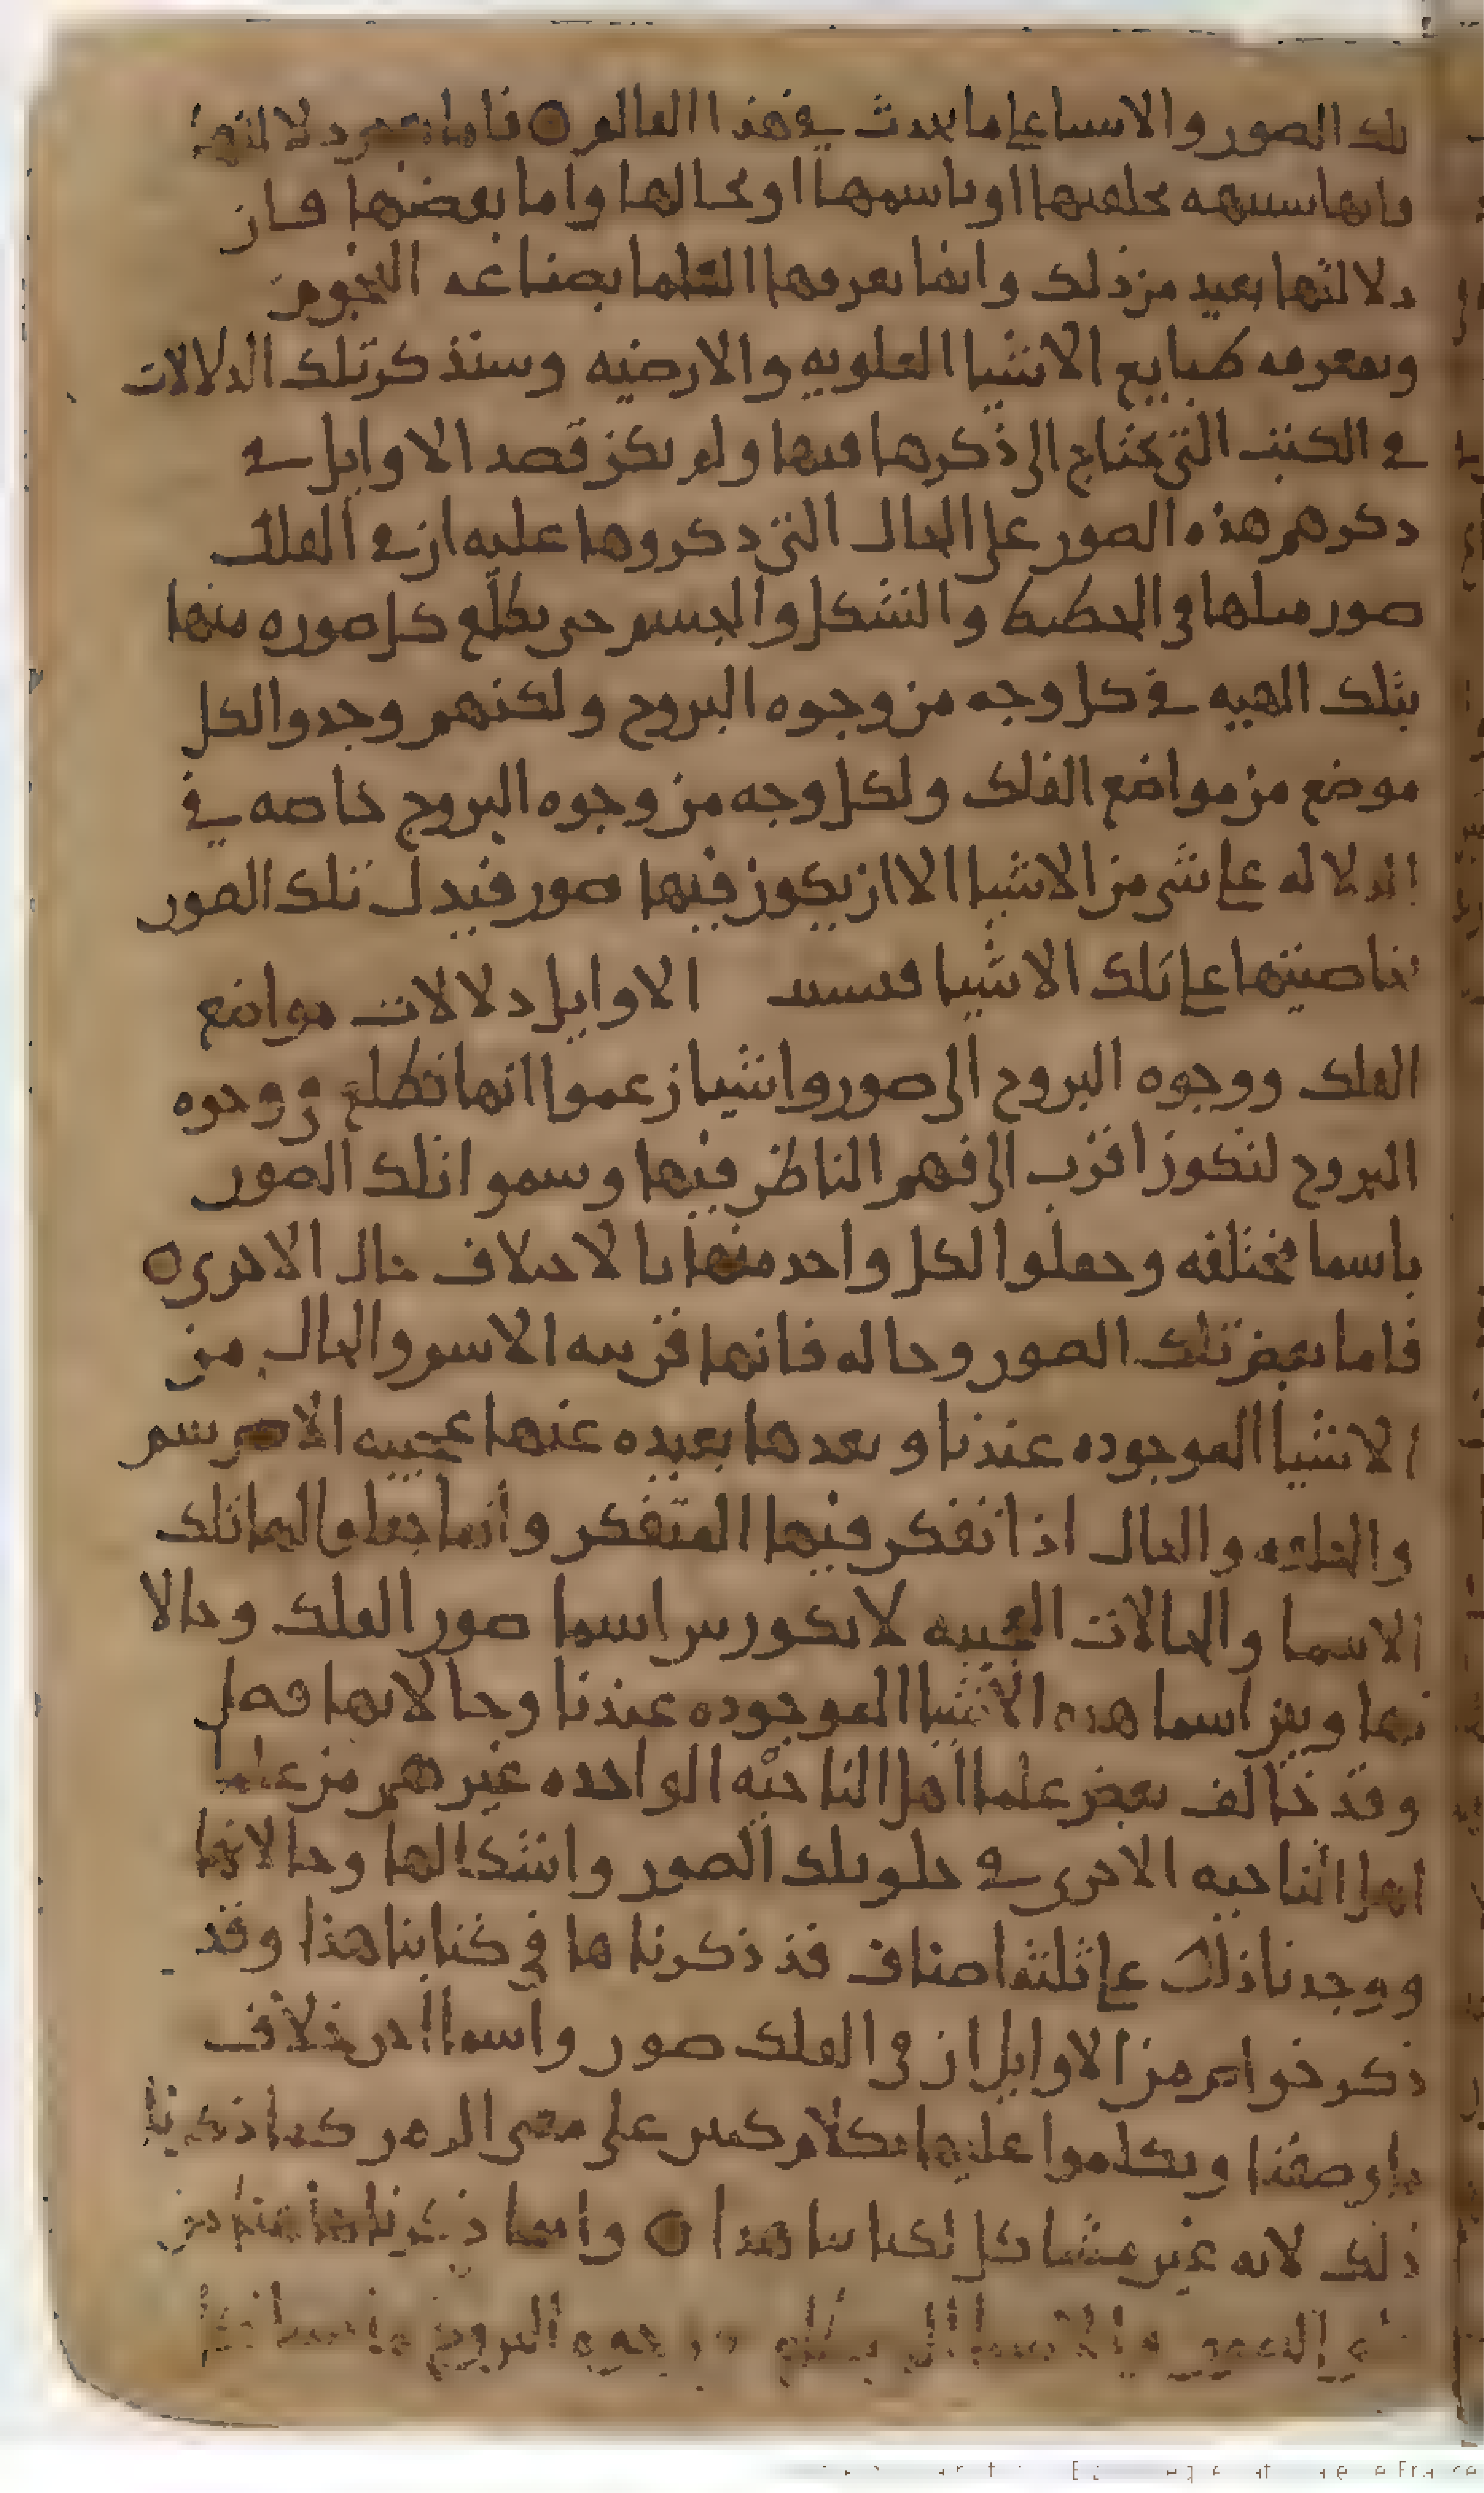 تلك الصور والاشيا على ما يحدث في هذا العالم ○ فاما دلالتها
فانها شبيهه بخلقتها او باسمها او بحالها واما بعضها فان
دلالتها بعيد من ذلك وانما يعرفها العلما بصناعه النجوم
وبمعرفه طبايع الاشيا العلويه والارضيه وسنذكر تلك الدلالات
في الكتب التي نحتاج الى ذكرها فيها ولم يكن قصد الاوايل في
ذكرهم هذه الصور على الحال التي ذكروها عليه ان في الفلك
صور مثلها في التخطيط والشكل والجسم حتى يطلع كل صوره منها
بتلك الهييه في كل وجه من وجوه البروج ولكنهم وجدوا لكل
موضع من مواضع الفلك ولكل وجه من وجوه البروج خاصه في
الدلاله على شي من الاشيا الا ان يكون فيها صور فيدل تلك الصور
بخاصيتها على تلك الاشيا فنسب الاوايل دلالات مواضع
الفلك ووجوه البروج الى صور واشيا زعموا انها تطلع في وجوه
البروج لتكون اقرب الى فهم الناظر فيها وسموا تلك الصور
باسما مختلفه وجعلوا لكل واحد منها بالاختلاف حال الاخرى ○
فاما بعض تلك الصور وحاله فانها قريبه الاسم والحال من
الاشيا الموجوده عندنا وبعدها بعيده عنها عجيبه الاسم
والخلقه والحال اذا تفكر فيها المتفكر وانما جعلوا لها تلك
الاسما والحالات العجيبه لا يكون بين اسما صور الفلك وحالا
تها وبين اسما هذه الاشيا الموجوده عندنا وحالاتها فصل
وقد خالف بعض علما اهل الناحيه الواحده غيرهم من علما
اهل الناحيه الاخرى في حلو تلك الصور واشكالها وحالاتها
ووجدنا ذلك على ثلثه اصناف قد ذكرناها في كتابنا هذا وقد
ذكر خواص من الاوايل ان في الفلك صور واسما اخر خلاف
ما وصفنا وتكلموا عليها بكلام كثير على معنى الرمز كما ذكرنا
ذلك لانه غير مشاكل لكتابنا هذا ○ وانما ذكرنا هاهنا من
الصور البروج